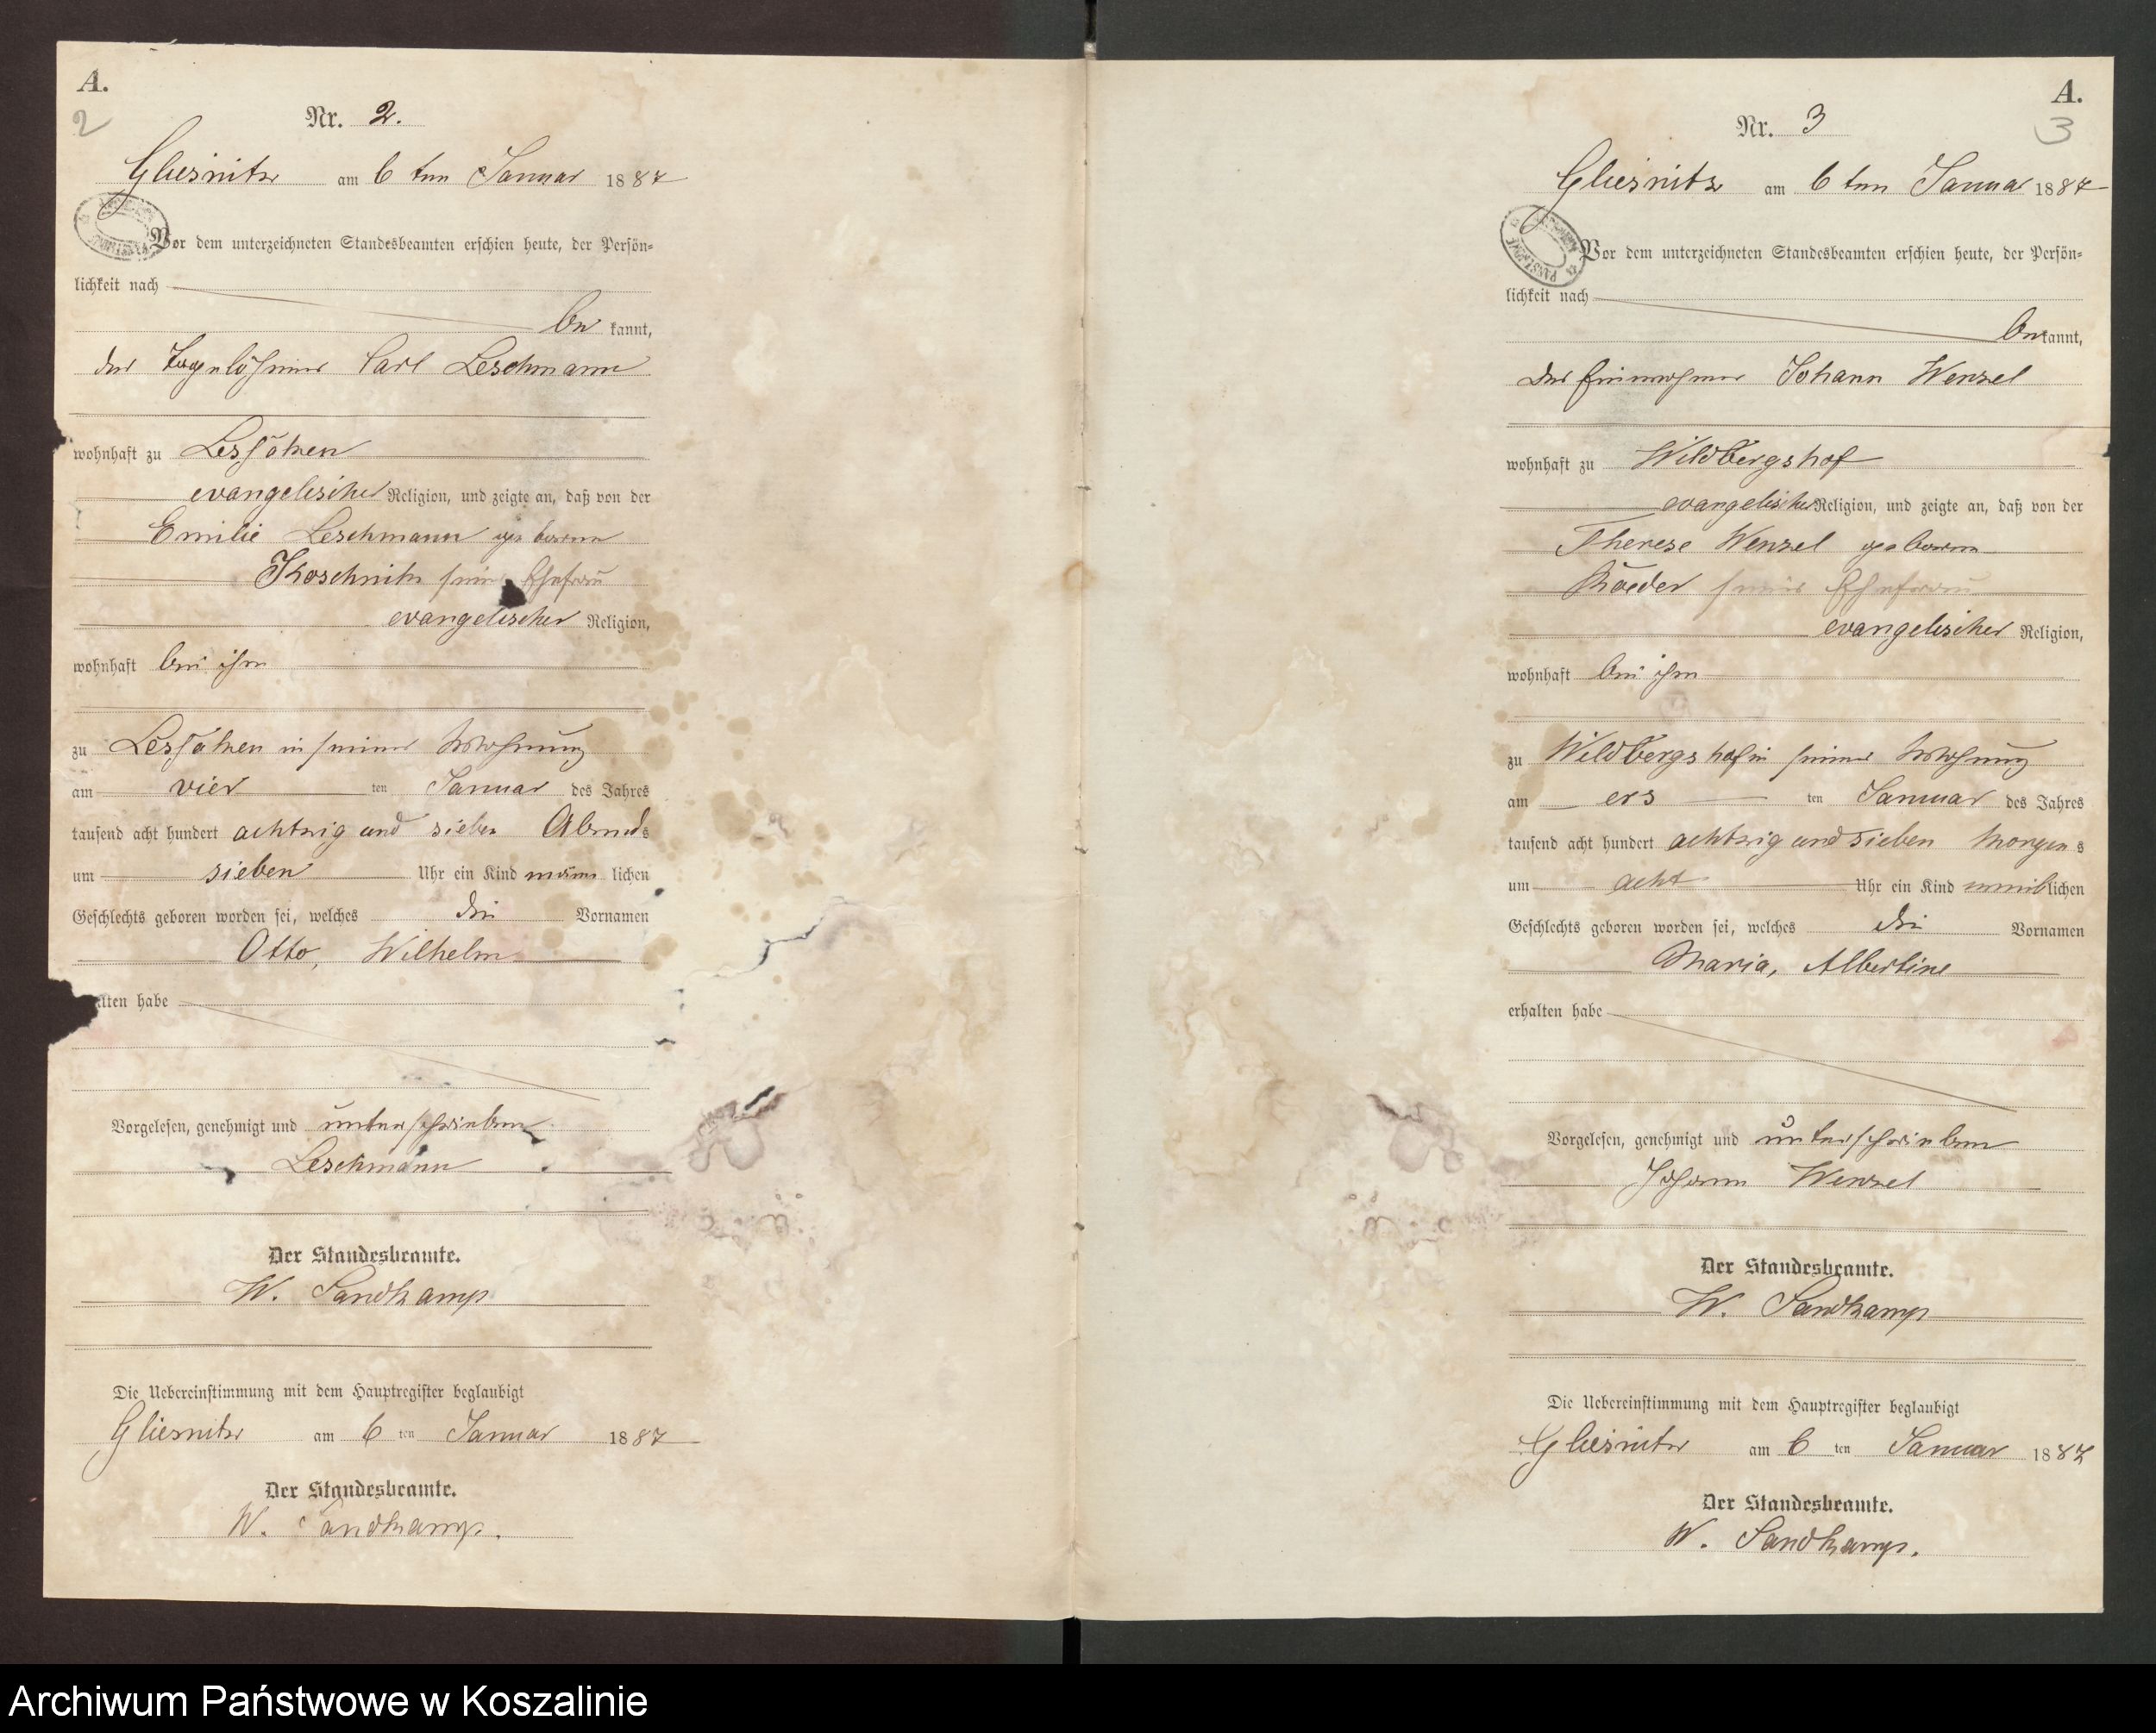 A.
2
Nr. 2.
Gliesnitz am 6 ten Januar 1887
Vor dem unterzeichneten Standesbeamten erschien heute, der Persön=
lichkeit nach
be kannt,
der Tagelöhner Carl Leschmann
wohnhaft zu
evangelischer Religion, und zeigte an, daß von der
Emilie Leschmann geborene
Koschnitz seiner Ehefrau
evangelischer Religion,
wohnhaft bei ihm
zu in seiner Wohnung
am vier ten Januar des Jahres
tausend acht hundert achtzig und sieben Abends
um sieben Uhr ein Kind männ lichen
Geschlechts geboren worden sei, welches die Vornamen
Otto, Wilhelm
alten habe
Vorgelesen, genehmigt und unterschrieben
Leschmann
Der Standesbeamte.
W. Sandkamp
Die Uebereinstimmung mit dem Hauptregister beglaubigt
Gliesnitz am 6 ten Januar 1887
Der Standesbeamte.
W. Sandkamp.
A.
3
Nr. 3
Gliesnitz am 6 ten Januar 1887
Vor dem unterzeichneten Standesbeamten erschien heute, der Persön=
lichkeit nach
bekannt,
der Einwohner Johann Wenzel
wohnhaft zu Wildbergshof
evangelischer Religion, und zeigte an, daß von der
Therese Wenzel geborene
Raeder seiner Ehefrau
evangelischer Religion,
wohnhaft bei ihm
zu Wildbergshof in seiner Wohnung
am ers ten Januar des Jahres
tausend acht hundert achtzig und sieben Morgens
um acht Uhr ein Kind weiblichen
Geschlechts geboren worden sei, welches die Vornamen
Maria, Albertine
erhalten habe
Vorgelesen, genehmigt und unterschrieben
Johann Wenzel
Der Standesbeamte.
W. Sandkamp
Die Uebereinstimmung mit dem Hauptregister beglaubigt
Gliesnitz am 6 ten Januar 1887
Der Standesbeamte.
W. Sandkamp.
Archiwum Państwowe w Koszalinie